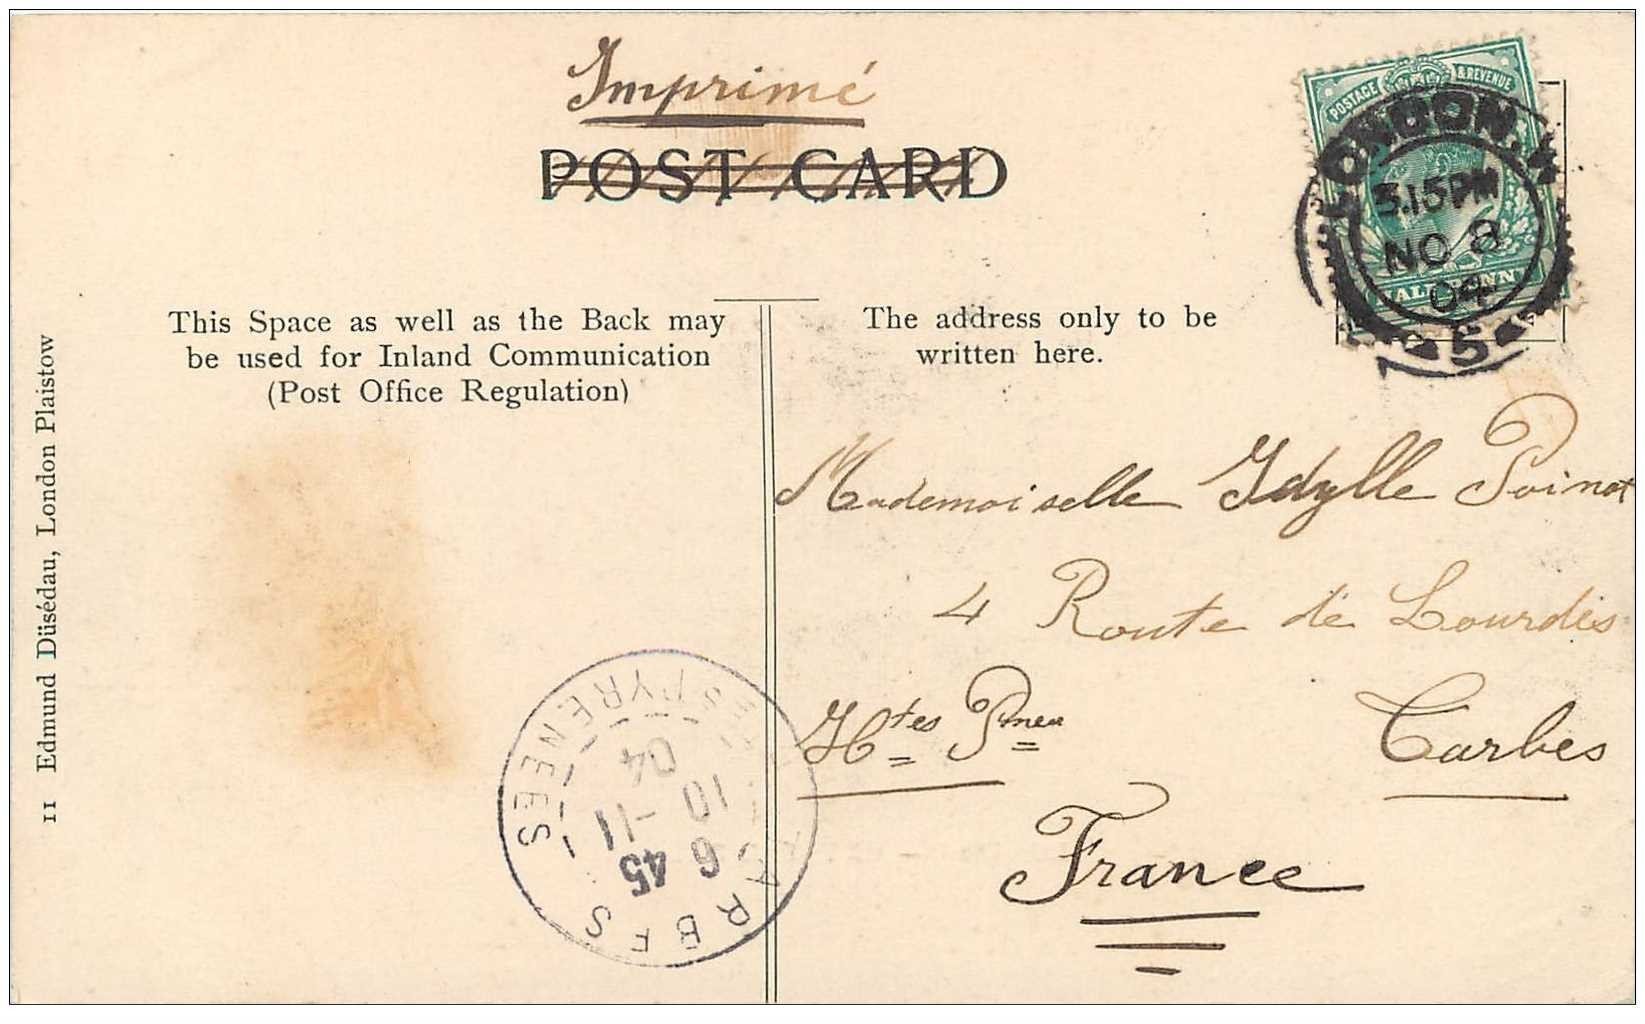 Imprimé
POST CARD
POSTAGE & REVENUE
LONDON. 
3.15PM
NO 8
04
5
This Space as well as the Back may
be used for Inland Communication
(Post Office Regulation)
The address only to be
written here.
Mademoiselle Idylle Poinot
4 Route de Lourdes
Htes Pnées
Tarbes
France
TARBES
6 45
10 -11
04
PYRENEES
11 Edmund Düsédau, London Plaistow